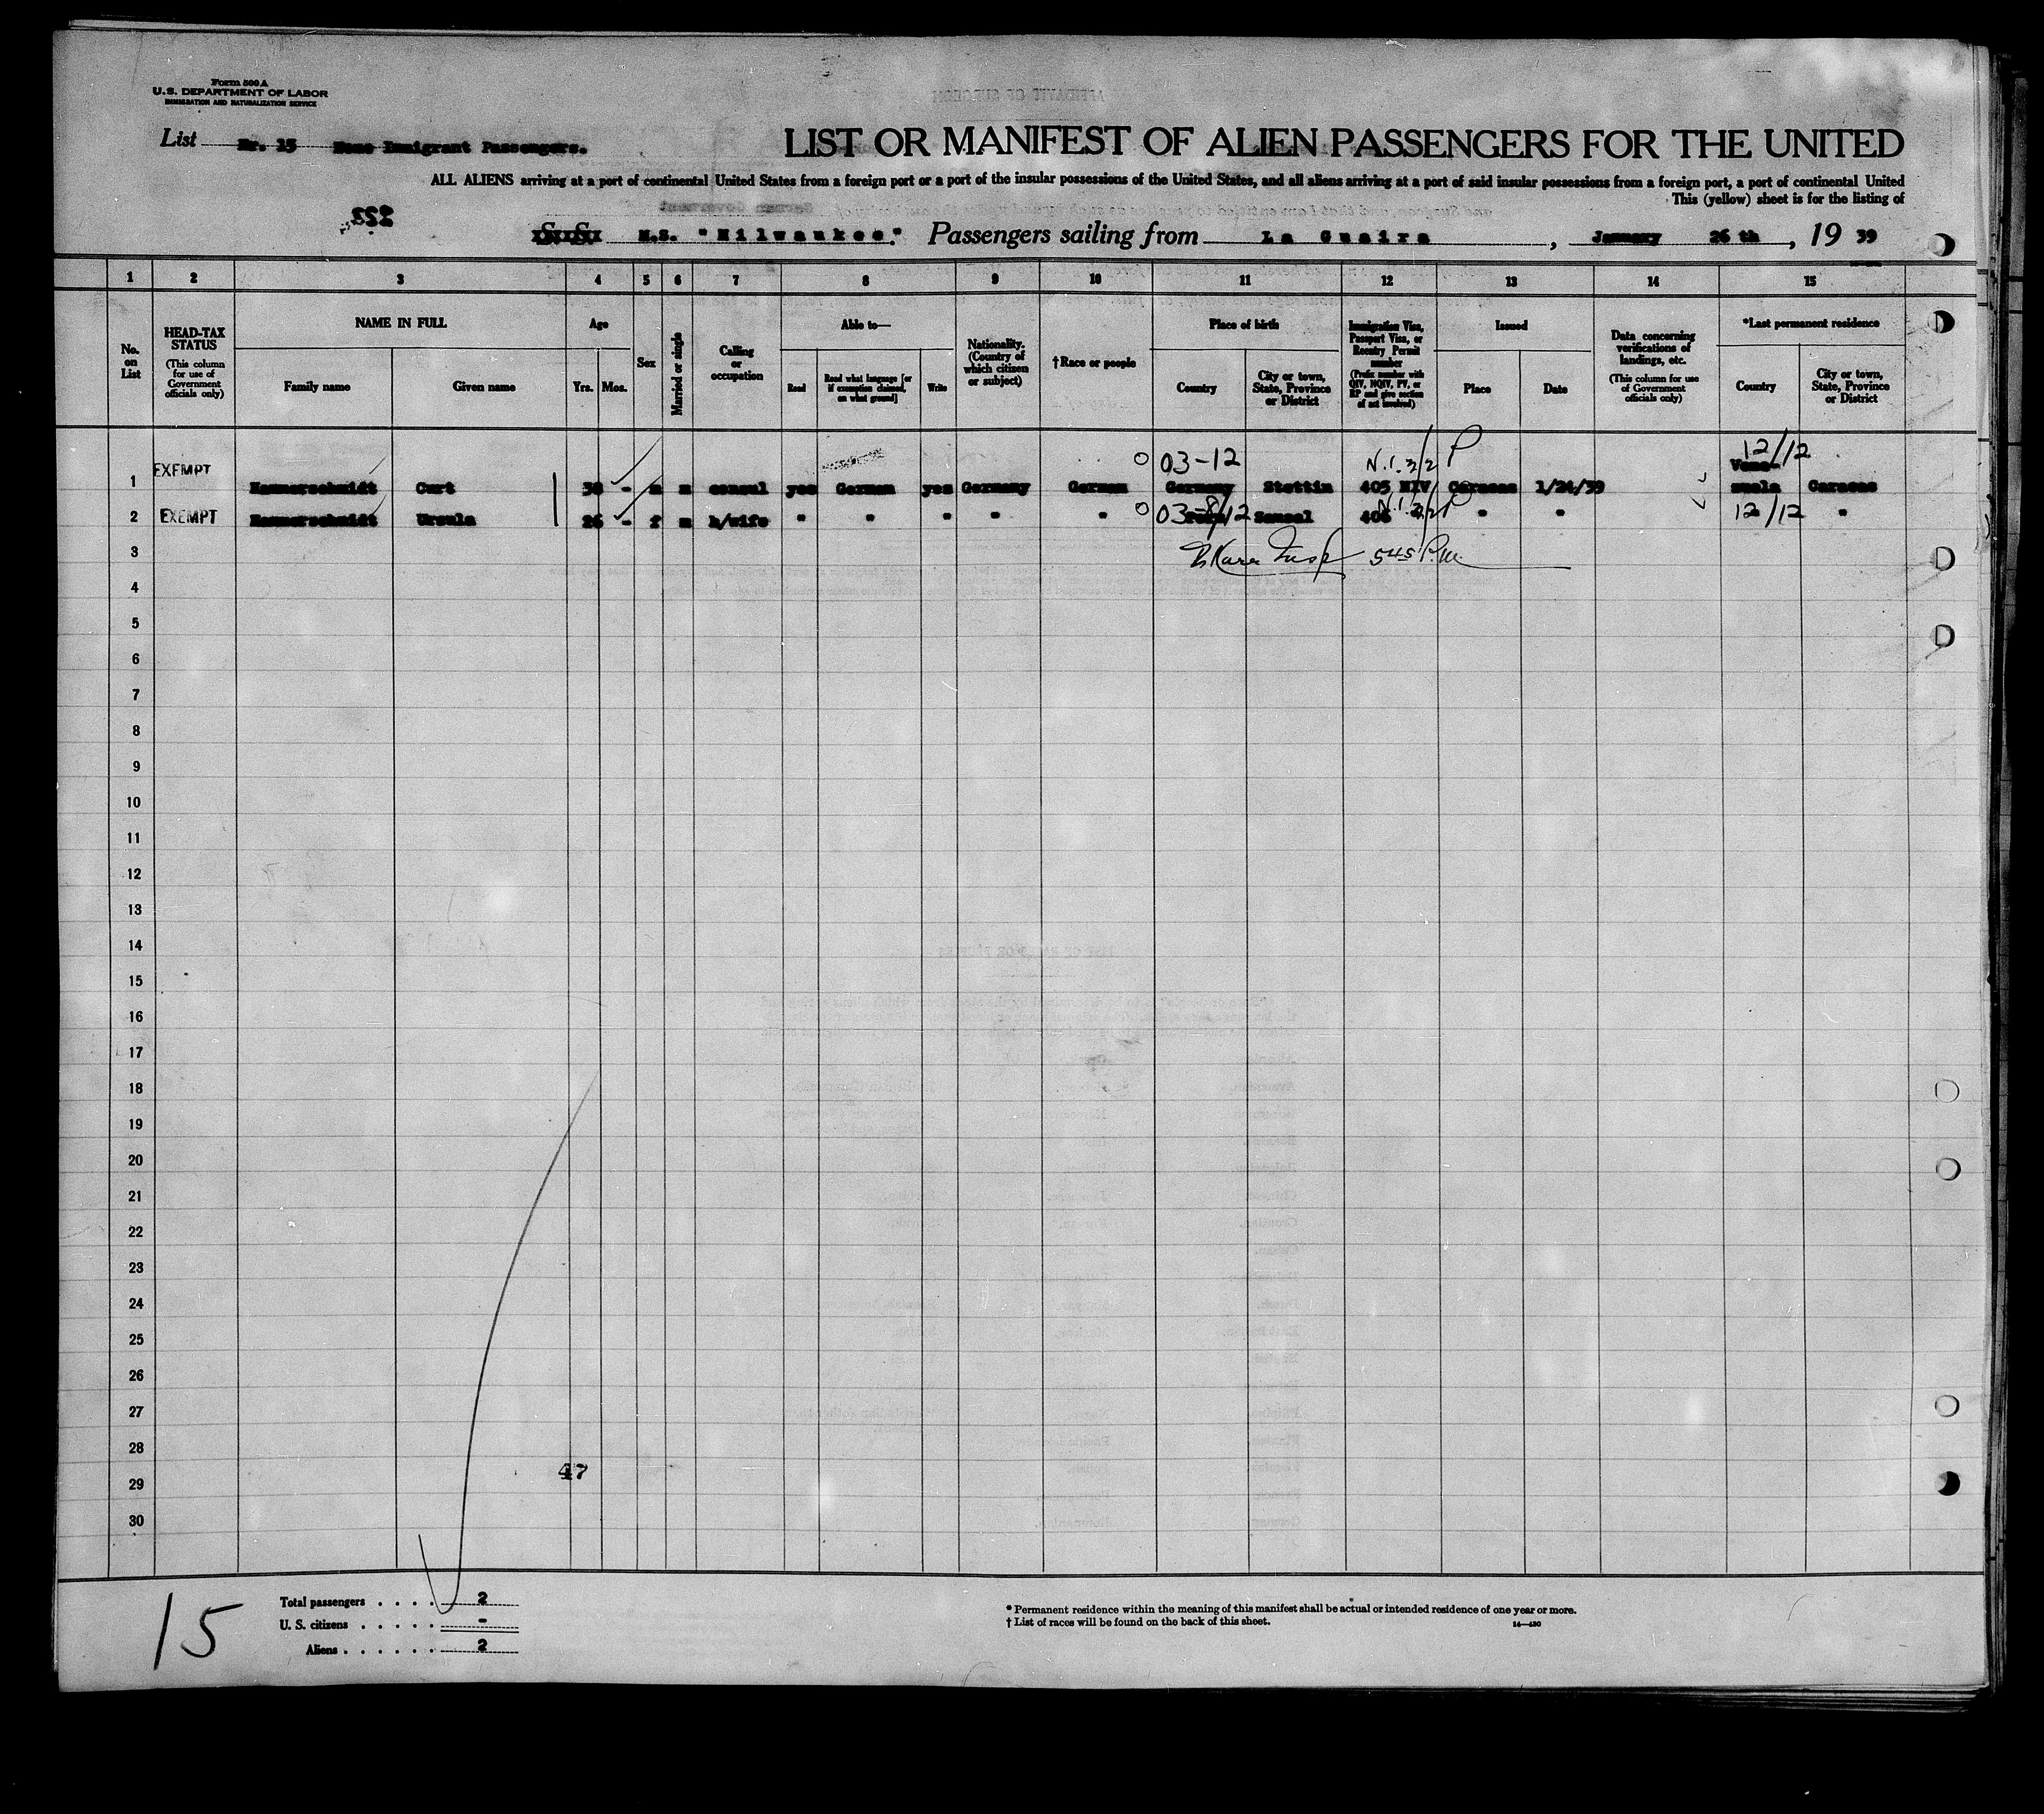 Form 500 A
U. S. DEPARTMENT OF LABOR
IMMIGRATION AND NATURALIZATION SERVICE
List Nr. 15 None Immigrant Passengers.
LIST OR MANIFEST OF ALIEN PASSENGERS FOR THE UNITED
ALL ALIENS arriving at a port of continental United States from a foreign port or a port of the insular possessions of the United States, and all aliens arriving at a port of said insular possessions from a foreign port, a port of continental United
This (yellow) sheet is for the listing of
222
M.S. "Milwaukee". Passengers sailing from La Guaira, January 26 th, 19 39
1 2 3 4 5 6 7 8 9 10 11 12 13 14 15
No. on List
HEAD-TAX STATUS (This column for use of Government officials only)
NAME IN FULL
Family name
Given name
Age
Yrs. Mos.
Sex
Married or single
Calling or occupation
Able to—
Read
Read what language [or if exemption claimed, on what ground]
Write
Nationality. (Country of which citizen or subject)
†Race or people
Place of birth
Country
City or town, State, Province or District
Immigration Visa, Passport Visa, or Reentry Permit number (Prefix number with QIV, NQIV, PV, or RP and give section of act involved)
Issued
Place
Date
Data concerning verifications of landings, etc. (This column for use of Government officials only)
*Last permanent residence
Country
City or town, State, Province or District
03-12 N.I. 3/2 P 12/12
1 EXEMPT Hammerschmidt Curt 38 - m m consul yes German yes Germany German Germany Stettin 405 NIV Caracas 1/24/39 Vene-zuela Caracas
2 EXEMPT Hammerschmidt Ursula 26 - f m h/wife " " " " " 03-8/12 406 " " " 12/12 "
3 545 P.M.
4
5
6
7
8
9
10
11
12
13
14
15
16
17
18
19
20
21
22
23
24
25
26
27
28
47
29
30
15
Total passengers . . . . 2
U. S. citizens . . . . . -
Aliens . . . . . . 2
* Permanent residence within the meaning of this manifest shall be actual or intended residence of one year or more.
† List of races will be found on the back of this sheet.
14—430